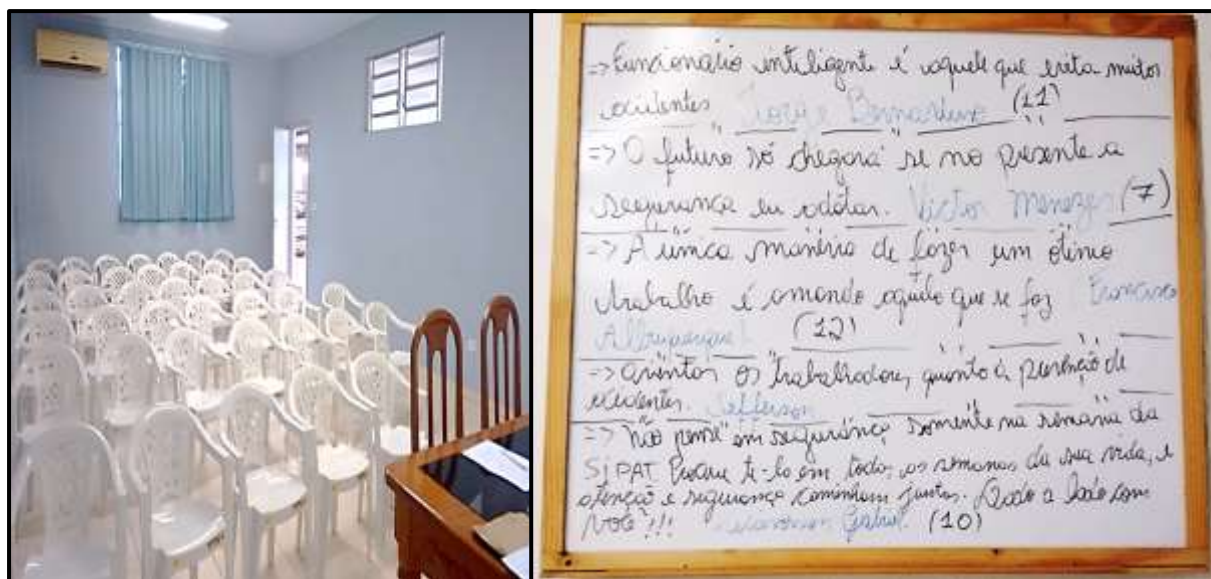 => Funcionário inteligente é aquele que evita muitos
acidentes Jorge Bernardino (11)
=> O futuro só chegará se no presente a
segurança eu adotar. Victor Menezes (7)
=> A única maneira de fazer um ótimo
trabalho é amando aquilo que se faz Francisco
Albuquerque (12)
=> orientar os trabalhadores quanto à prevenção de
acidentes. Jefferson
=> "não pense" em segurança somente na semana da
SIPAT Procure te-lo em todas as semanas da sua vida, e
atenção e segurança caminham juntas. Lado a lado com
você"!!! Gabriel (10)